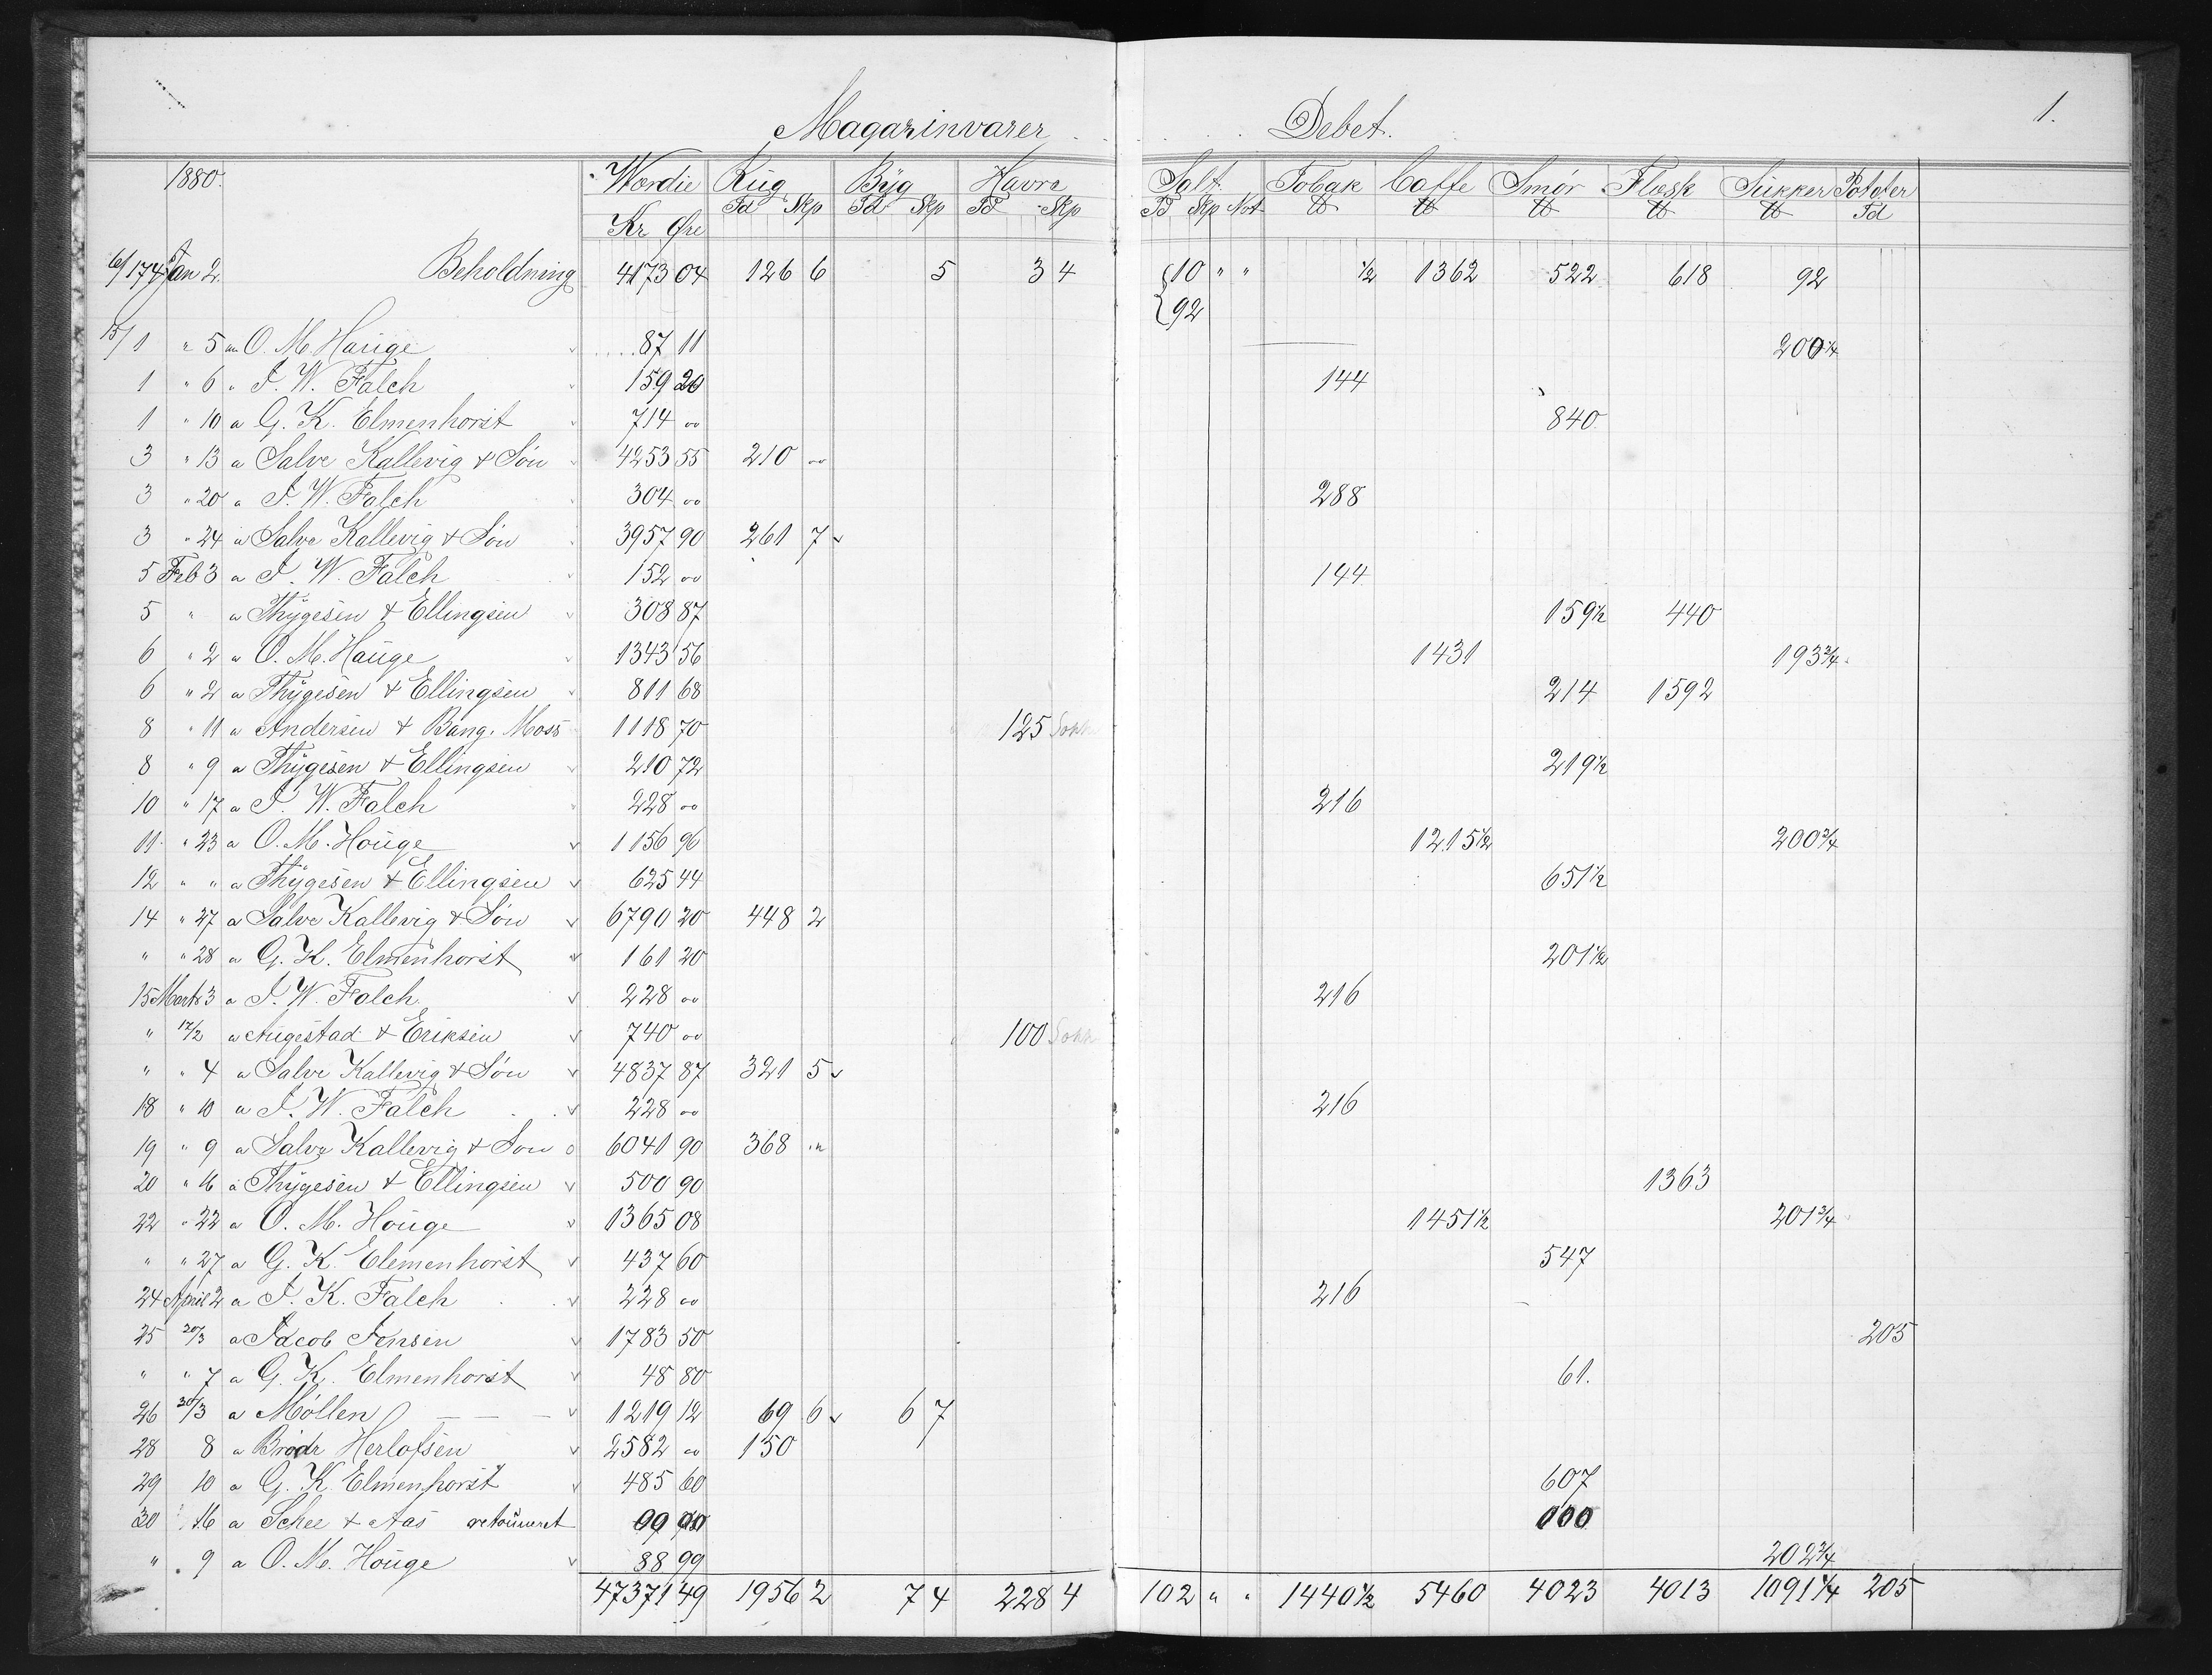 Magazinvarer Debet. 1.
1880. Værdie Rug Byg Havre Salt Tobak Caffe Smør Flæsk Sukker Poteter
Kr Øre Td Skp Td Skp Td Skp Td Skp Not ℔ ℔ ℔ ℔ ℔ Td
174 Jan 2. Beholdning 4173 04 126 6 5 3 4 {10 " " ½ 1362 522 618 92
{92
15/1 " 5 a O. M. Hauge 87 11 200¼
1 " 6 " J. W. Falch 159 20 144
1 " 10 a G. K. Elmenhorst 714 oo 840
3 " 13 a Salve Kallevig & Søn 4253 55 210 oo
3 " 20 a J. W. Falch 304 oo 288
3 " 24 a Salve Kallevig & Søn 3957 90 261 7
5 Feb 3 a J. W. Falch 152 oo 144
5 " a Thygesen & Ellingsen 308 87 159½ 440
6 " 2 a O. M. Hauge 1343 56 1431 193¾
6 " 2 a Thygesen & Ellingsen 811 68 214 1592
8 " 11 a Andersen & Bang. Moss 1118 70 125 Sokk
8 " 9 a Thygesen & Ellingsen 210 72 219½
10 " 17 a J. W. Falch 228 oo 216
11 " 23 a O. M. Houge 1156 96 1215½ 200¾
12 " " a Thygesen & Ellingsen 625 44 651½
14 " 27 a Salve Kallevig & Søn 6790 20 448 2
" " 28 a G. K. Elmenhorst 161 20 201½
15 Marts 3 a J. W. Falch 228 oo 216
" 12/2 a Augestad & Eriksen 740 oo 100 Sokk
" " 4 a Salve Kallevig & Søn 4837 87 321 5
18 " 10 a J. W. Falch 228 oo 216
19 " 9 a Salve Kallevig & Søn 6041 90 368 "
20 " 16 a Thygesen & Ellingsen 500 90 1363
22 " 22 a O. M. Houge 1365 08 1451½ 201¾
" " 27 a G. K. Elemenhorst 437 60 547
24 April 2 a J. K. Falch 228 oo 216
25 20/3 a Jacob Jensen 1783 50 205
" " 7 a G. K. Elmenhorst 48 80 61.
26 30/3 a Möllen 1219 12 69 6 6 7
28 8 a Brødr Herlofsen 2582 oo 150
29 10 a G. K. Elmenhorst 485 60 607
30 16 a Schee & Aas retouneret 00 00 000
" 9 a O. M. Houge 88 99 202¾
47371 49 1956 2 7 4 228 4 102 " " 1440½ 5460 4023 4013 1091¼ 205